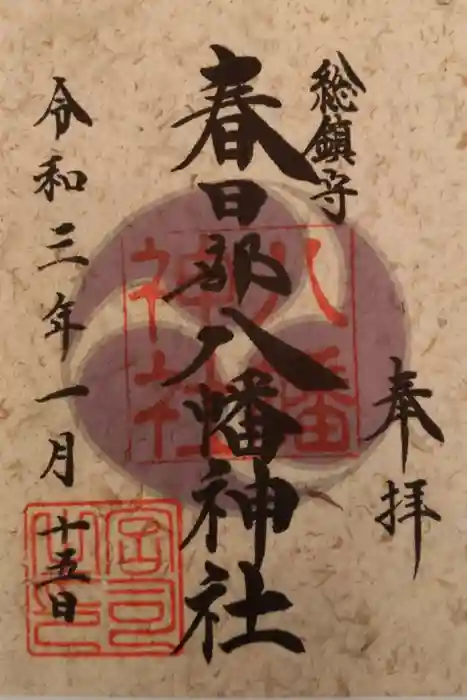 奉拝
総鎮守
春日部八幡神社
八幡
神社
令和三年一月十五日
宮司之印